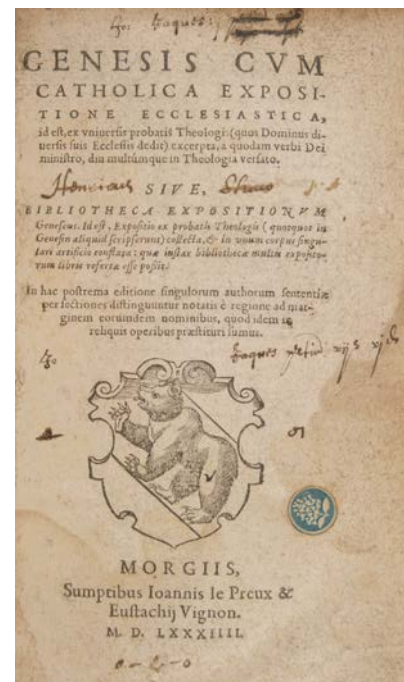 Jaques
GENESIS CVM
CATHOLICA EXPOSI-
TIONE ECCLESIASTICA,
id est, ex vniuersis probatis Theologis (quos Dominus di-
uersis suis Ecclesiis dedit) excerpta, a quodam verbi Dei
ministro, diu multúmque in Theologia versato.
SIVE,
BIBLIOTHECA EXPOSITIONVM
Geneseos. Id est, Expositio ex probatis Theologis (quotquot in
Genesin aliquid scripserunt) collecta, & in unum corpus singu-
lari artificio conflata: quæ instar bibliothecæ multis exposito-
rum libris refertæ esse possit.
In hac postrema editione singulorum authorum sententiæ
per sectiones distinguuntur notatis è regione ad mar-
ginem eorumdem nominibus, quod idem in
reliquis operibus præstituri sumus.
Jaques
MORGIIS,
Sumptibus Ioannis le Preux &
Eustachij Vignon.
M. D. LXXXIIII.